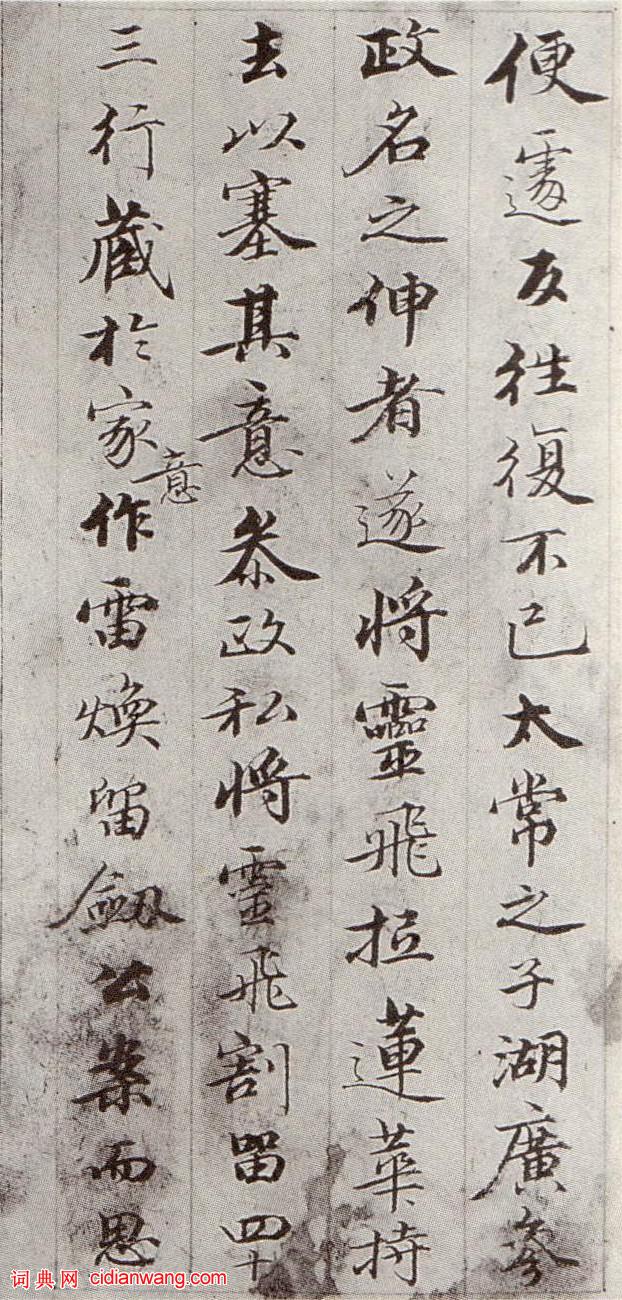 便遽反往復不已太常之子湖廣參
政名之伸者遂將靈飛抵蓮華持
去以塞其意叅政私將靈飛割留四十
三行藏於家意作雷煥留劔公案而思
词典网 cidianwang.com